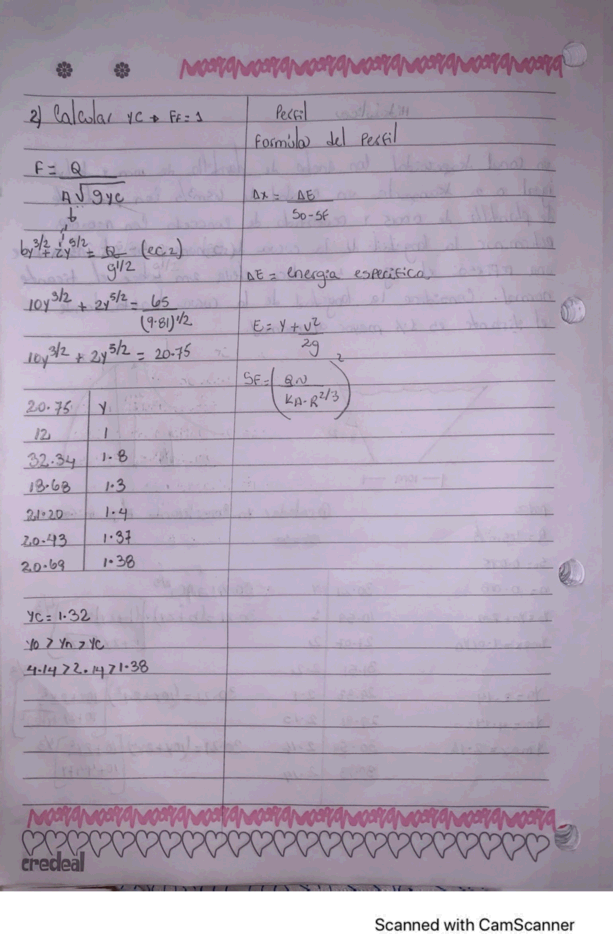 2) Calcular yc → FF = 1
F = Q
A√9yc
b z
by^3/2 + zy^5/2 = Q (ec 2)
g^1/2
10y^3/2 + 2y^5/2 = 65
(9.81)^1/2
10y^3/2 + 2y^5/2 = 20.75
20.75 y
12 1
32.34 1.8
18.68 1.3
21.20 1.4
20.43 1.37
20.69 1.38
yc = 1.32
yo > yn > yc
4.14 > 2.14 > 1.38
Perfil
Formula del Perfil
Δx = ΔE
So - SF
ΔE = energia especifica
E = y + v²
2g
SF = (QN)²
KA·R^2/3
credeal
Scanned with CamScanner